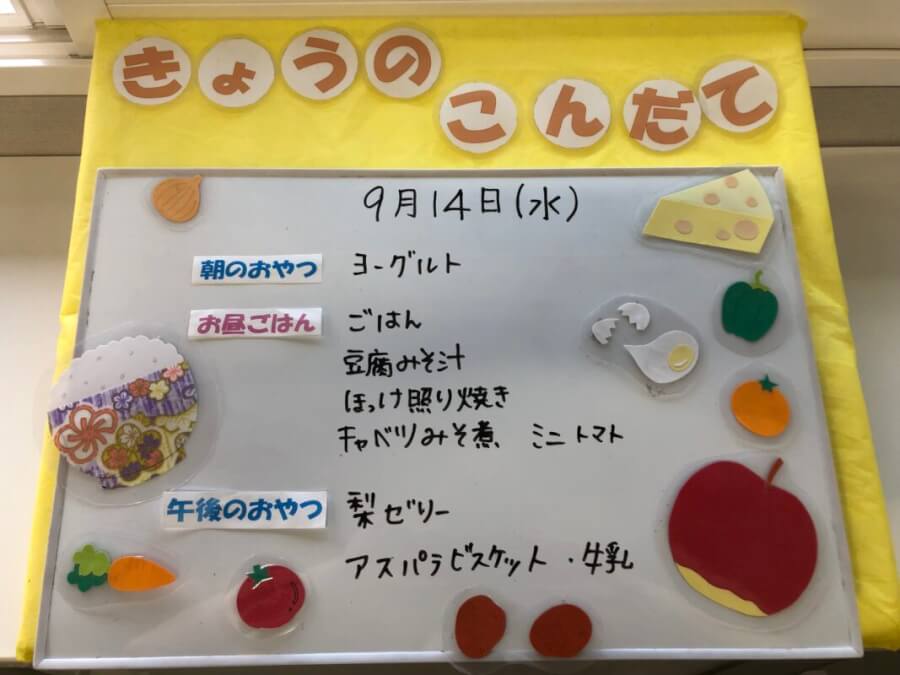 きょうの
こんだて
9月14日(水)
朝のおやつ ヨーグルト
お昼ごはん ごはん
豆腐みそ汁
ほっけ照り焼き
キャベツみそ煮、ミニトマト
午後のおやつ 梨ゼリー
アスパラビスケット・牛乳